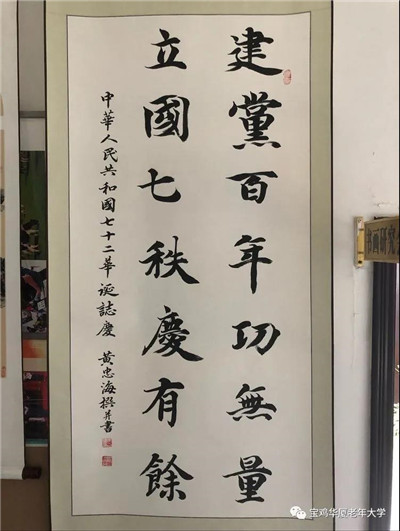 建黨百年功無量
立國七秩慶有餘
中華人民共和國七十二華诞誌慶 黄忠海撰并書
宝鸡华厦老年大学